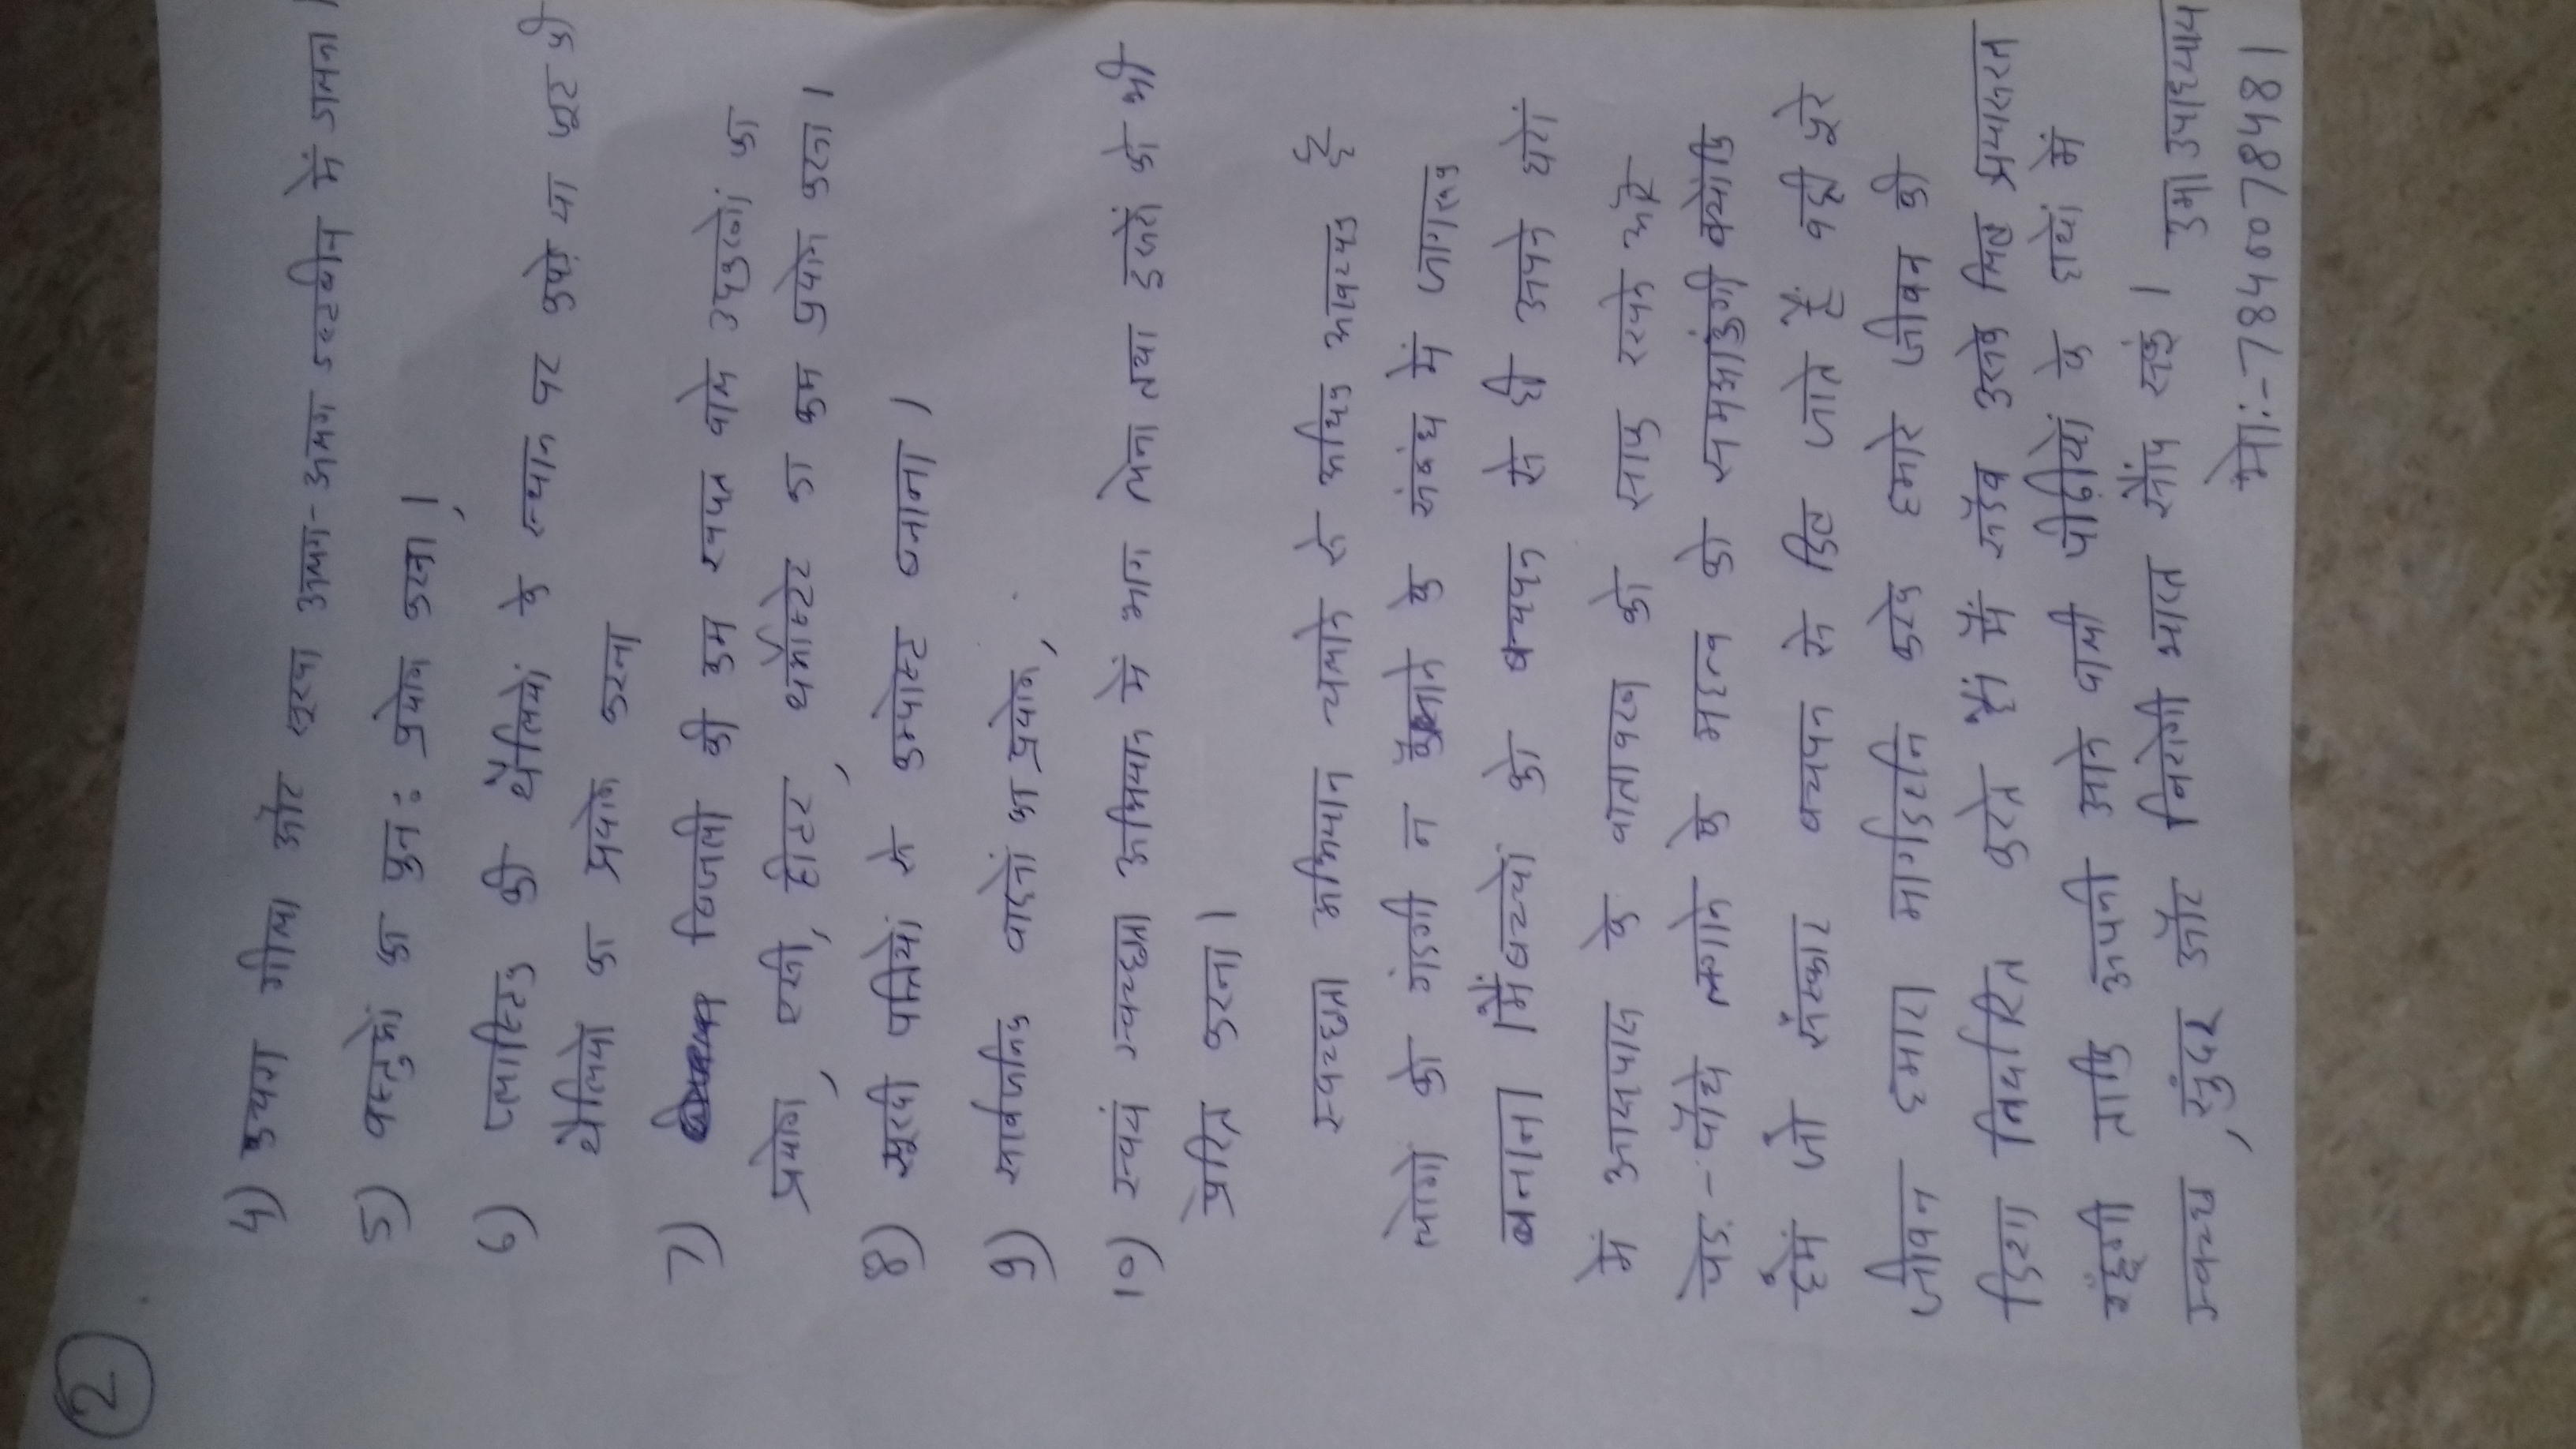 2
4) कचरा गीला और सूखा अलग-अलग डस्टबीन में डालना।
5) वस्तुओं का पुन: प्रयोग करना,।
6) प्लास्टिक की थैलियों के स्थान पर कपड़े या जूट की
थैलियों का प्रयोग करना
7) बिजली की कम खपत वाले उपकरणों का
प्रयोग, एसी, हीटर, थर्माकोल का कम प्रयोग करना।
8) सूखी पत्तियों से कम्पोस्ट बनाना।
9) सार्वजनिक वाहनों का प्रयोग,
10) स्वयं स्वच्छता अभियान में भाग लेना तथा दूसरों को भी
प्रेरित करना।
स्वच्छता अभियान चलाने से अधिक आवश्यक है
लोगों को गंदगी न फैलाने के संबंध में जागरूक
बनाना। मैं बच्चों को बचपन से ही अपने घरों
में आसपास के वातावरण को साफ रखने और
पेड़-पौधे लगाने के महत्व को समझाऊंगी क्योंकि
हमें जो संस्कार बचपन से दिए जाते हैं वही पूरे
जीवन हमारा मार्गदर्शन करके हमारे जीवन की
दिशा निर्धारित करते हैं। मैं सदैव इसके लिए प्रयासरत
रहूंगी ताकि अपनी आने वाली पीढ़ियों के हाथों में
स्वच्छ, सुंदर और निरोगी भारत सौंप सकूं। उमा उपाध्याय
मो:-7846078481